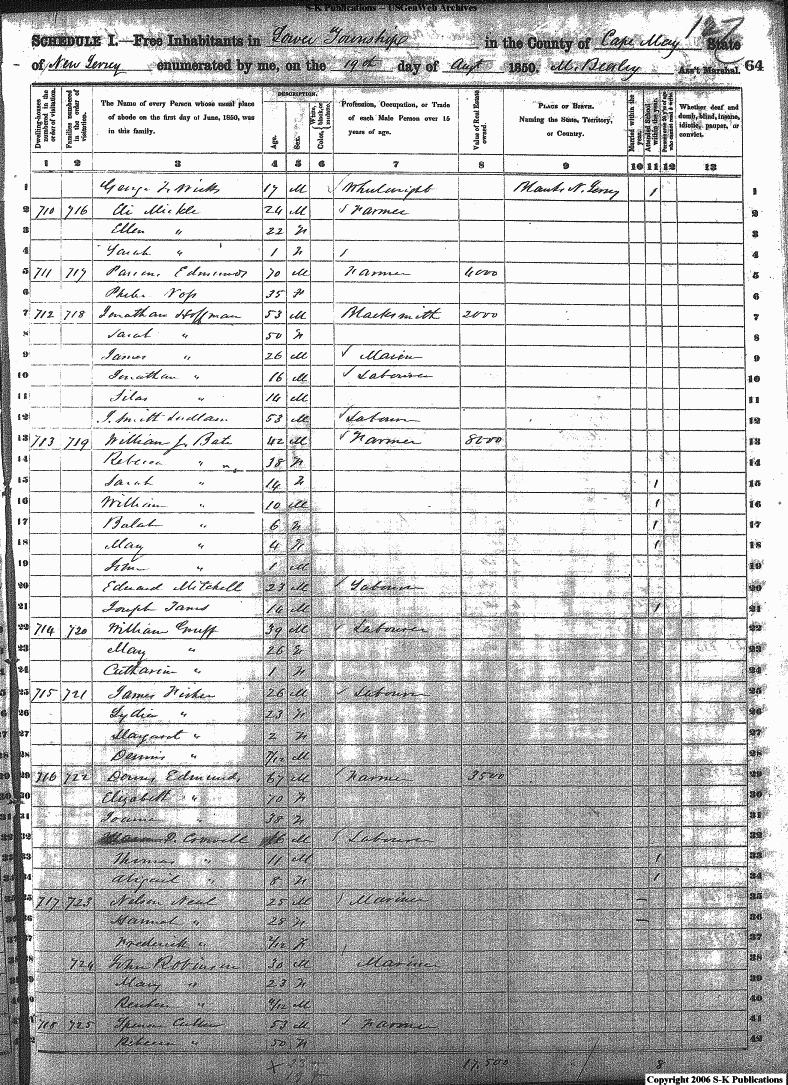 S-K Publications - USGenWeb Archives
127
SCHEDULE I.—Free Inhabitants in Lower Township in the County of Cape May State
of New Jersey enumerated by me, on the 19th day of Augt 1850. Ass't Marshal. 64
Dwelling-houses numbered in the order of visitation.
Families numbered in the order of visitation.
The Name of every Person whose usual place of abode on the first day of June, 1850, was in this family.
DESCRIPTION.
Age.
Sex.
Color, White, black, or mulatto.
Profession, Occupation, or Trade of each Male Person over 15 years of age.
Value of Real Estate owned.
PLACE OF BIRTH. Naming the State, Territory, or Country.
Married within the year.
Attended School within the year.
Whether deaf and dumb, blind, insane, idiotic, pauper, or convict.
1 2 3 4 5 6 7 8 9 10 11 12 13
1 George 17 M Whulwright N. Jersey 1 1
2 710 716 Eli Mickle 24 M Farmer 2
3 Ellen " 22 F 3
4 Sarah " 1 F 4
5 711 717 Parsons Edmunds 70 M Farmer 4000 5
6 Phebe 35 F 6
7 712 718 Jonathan Hoffman 53 M Blacksmith 2000 7
8 Sarah " 50 F 8
9 James " 26 M Marine 9
10 Jonathan " 16 M Labourer 10
11 Silas " 14 M 11
12 J. Smith Ludlam 53 M Labourer 12
13 713 719 William J. Bate 42 M Farmer 8000 13
14 Rebecca " 38 F 14
15 Sarah " 14 F 1 15
16 William " 10 M 1 16
17 " 6 F 1 17
18 May " 4 F 1 18
19 John " 1 M 19
20 Edward Mitchell 23 M Labourer 20
21 Joseph 14 M 1 21
22 714 720 William 39 M Labourer 22
23 May " 26 F 23
24 Catharine " 1 F 24
25 715 721 James Fisher 26 M Labourer 25
26 Lydia " 23 F 26
27 Margaret " 2 F 27
28 Dennis " 7/12 M 28
29 716 722 Edmunds 67 M Farmer 3500 29
30 Elizabeth " 70 F 30
31 " 38 F 31
32 D. Crowell M Labourer 32
33 Thomas " 11 M 1 33
34 Abigail " 8 F 1 34
35 717 723 Nelson Neal 25 M Mariner 35
36 Hannah " 28 F 36
37 Frederick " F 37
38 724 John Robinson 30 M Mariner 38
39 Mary " 23 F 39
40 Reuben " M 40
41 718 725 Spencer Cullen 53 M Farmer 41
42 Rebecca " 50 F 42
17,500 8
Copyright 2006 S-K Publications